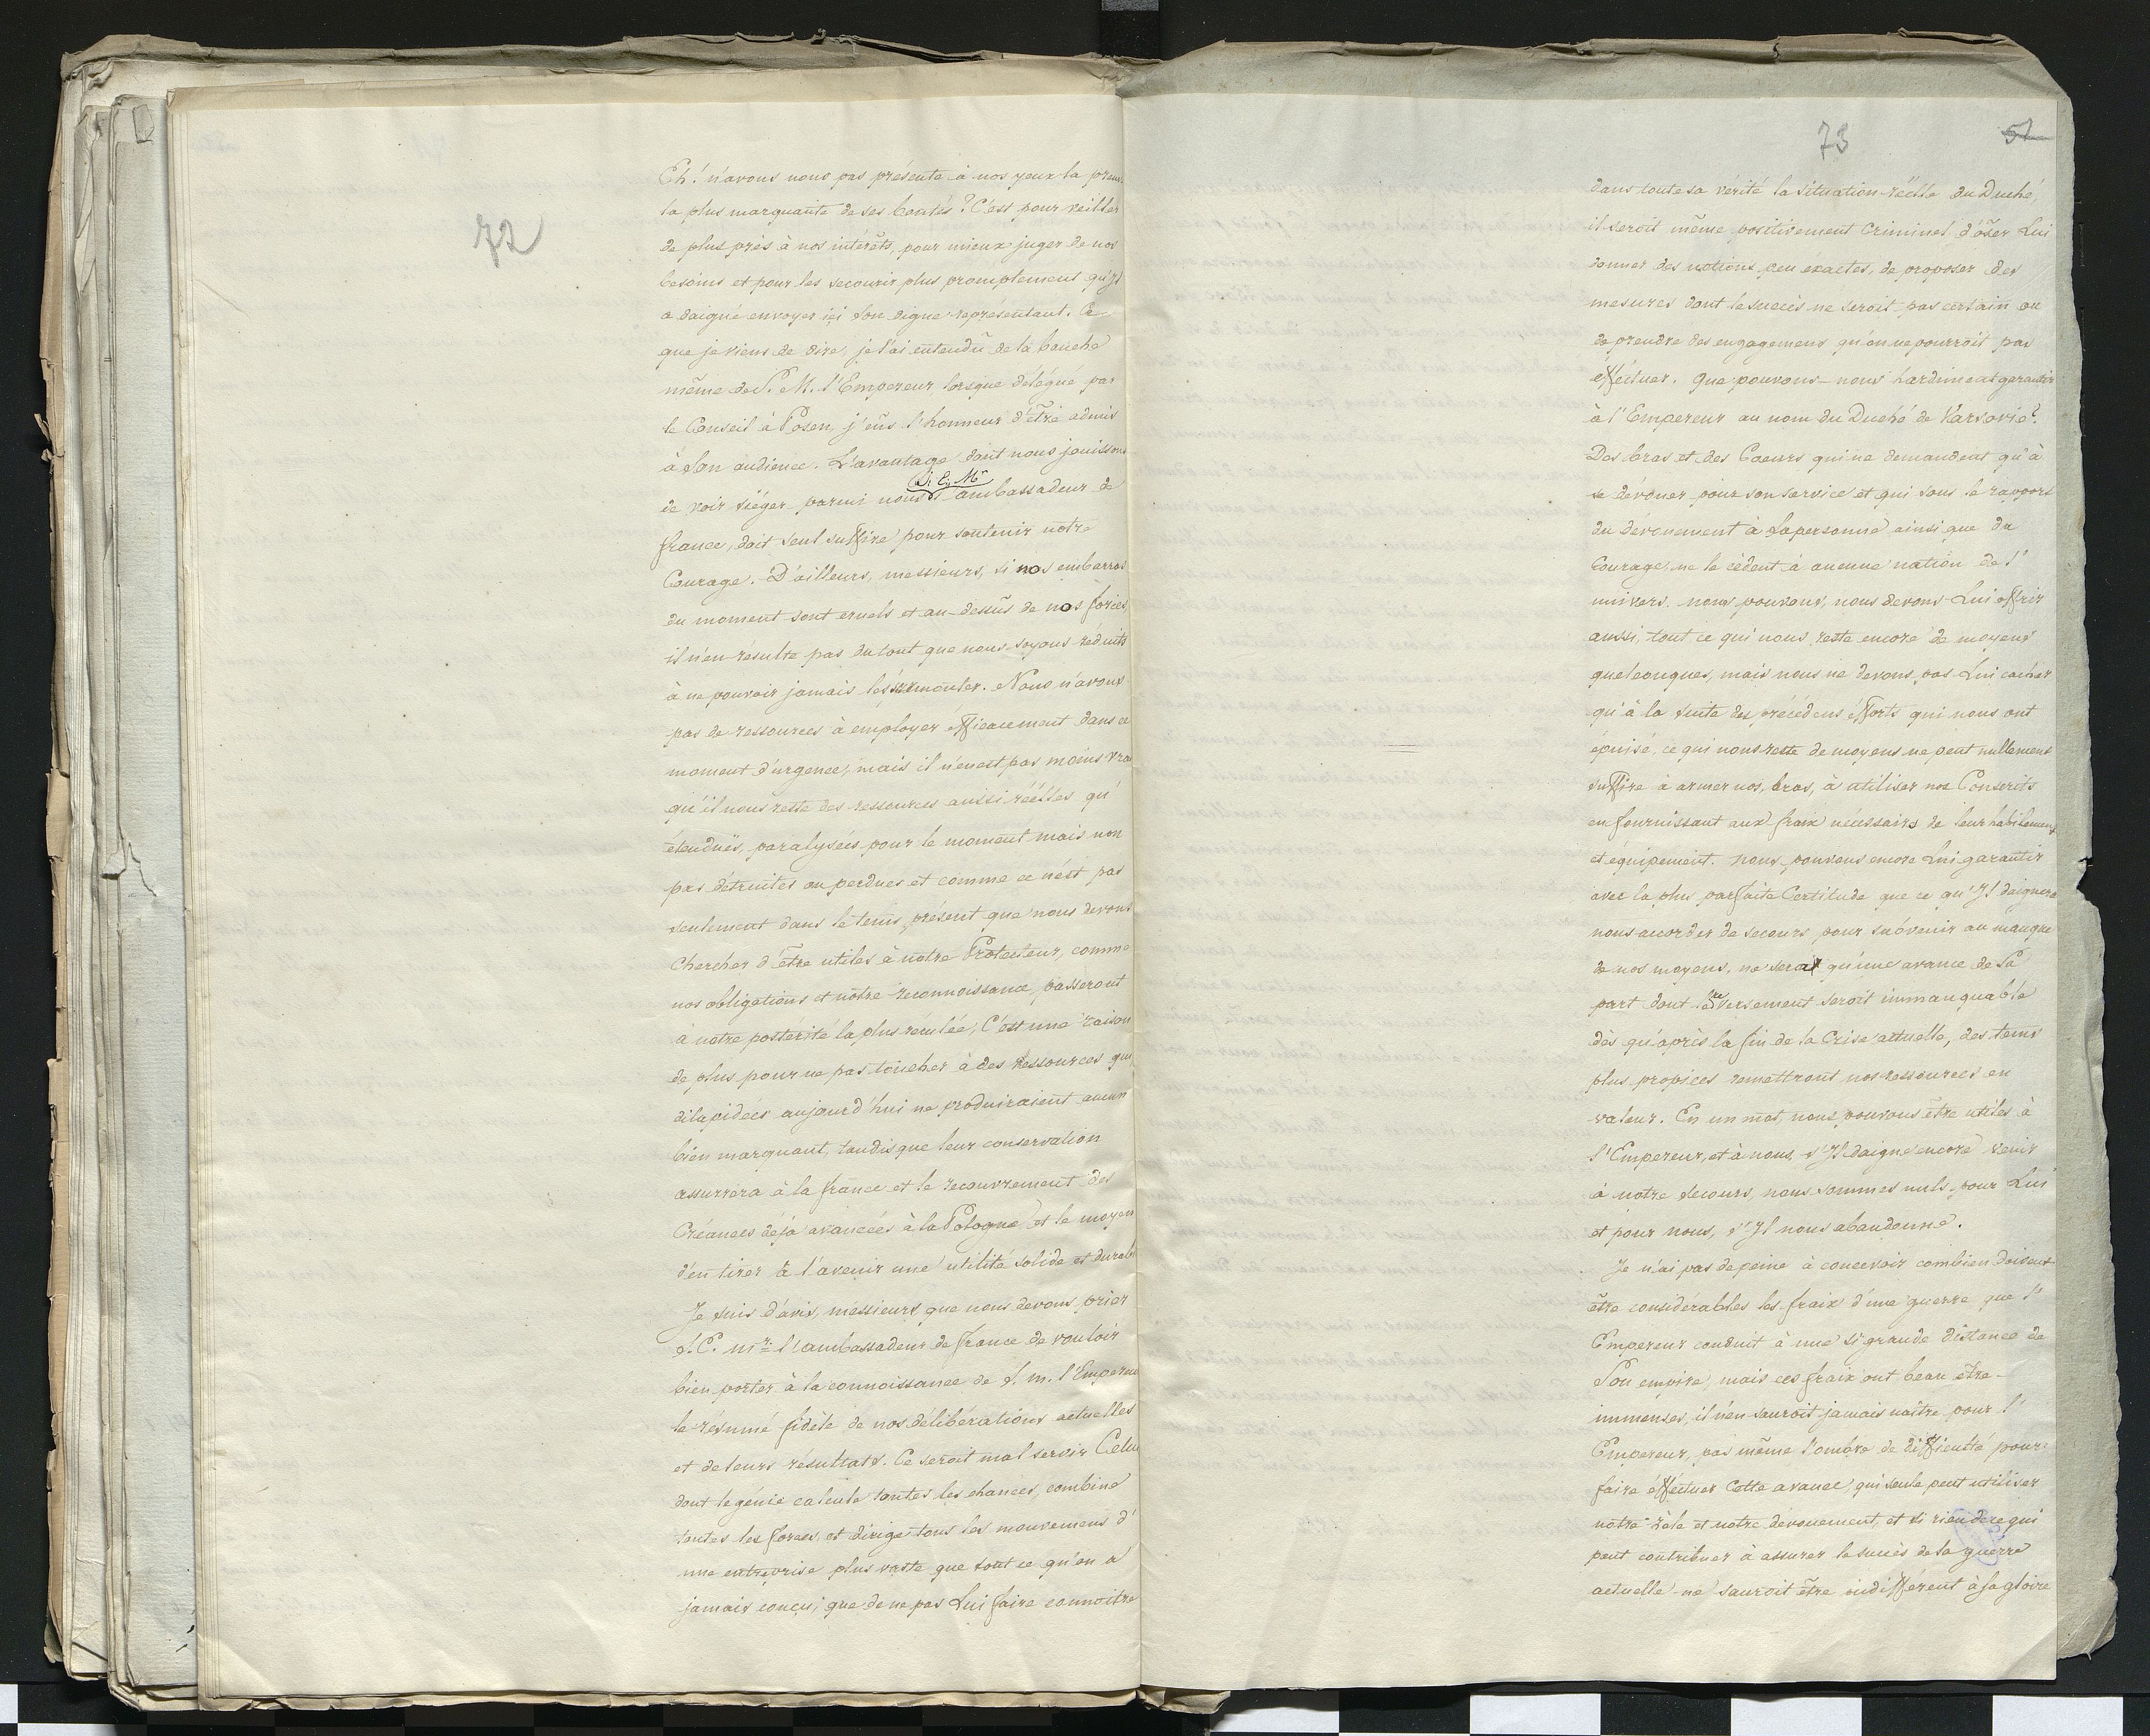 72
Eh! n'avons nous pas présenté à nos yeux la preuve
la plus marquante de ses bontés? C'est pour veiller
de plus près à nos intérêts, pour mieux juger de nos
besoins et pour les secourir plus promptement qu'Jl
a daigné envoyer ici son digne représentant. Ce
que je viens de dire, je l'ai entendu de la bouche
même de S. M. l'Empereur lorsque délégué par
le Conseil à Posen, j'eûs l'honneur d'être admis
à Son audience. L'avantage dont nous jouissons
de voir siéger parmi nous S. E. Mr l'ambassadeur de
france, doit seul suffire pour soutenir notre
Courage. D'ailleurs, messieurs, si nos embarras
du moment sont cruels et au-dessus de nos forces,
il n'en resulte pas du tout que nous soyons réduits
à ne pouvoir jamais les surmonter. Nous n'avons
pas de ressources à employer éfficacement dans ce
moment d'urgence, mais il n'en est pas moins vrai
qu'il nous reste des ressources aussi réelles qu'
étendües, paralysées pour le moment mais non
pas détruites ou perdues et comme ce n'est pas
seulement dans le tems présent que nous devons
chercher d'être utiles à notre Protecteur, comme
nos obligations et notre reconnoissance passeront
à notre postérité la plus réculée; C'est une raison
de plus pour ne pas toucher à des ressources qui
dilapidées aujourd'hui ne produiraient aucun
bien marquant, tandis que leur conservation
assurrera à la france et le recouvrement des
Créances déjà avancées à la Pologne et le moyen
d'en tirer à l'avenir une utilité solide et durable
Je suis d'avis, messieurs, que nous devons prier
S. E. mr. l'ambassadeur de france de vouloir
bien porter à la connoissance de S. m. l'Empereur
le résumé fidèle de nos délibérations actuelles
et de leurs résultats. Ce seroit mal servir Celui
dont le génie calcule toutes les chances, combine
toutes les forces, et dirige tous les mouvemens d'
une entreprise plus vaste que tout ce qu'on a
jamais conçu; que de ne pas Lui faire connoitre
73
51
dans toute sa vérité la situation réelle du Duché,
il seroit même positivement Criminel d'oser Lui
donner des notions peu éxactes, de proposer des
mesures dont le succès ne seroit pas certain ou
de prendre des engagemens qu'on ne pourroit pas
éffectuer. Que pouvons-nous hardiment garantir
à l'Empereur au nom du Duché de Varsovie?
Des bras et des Coeurs qui ne demandent qu'à
se dévouer pour son service et qui sous le rapport
du dévouement à Sa personne ainsi que du
Courage, ne le cèdent à aucune nation de l'
univers. nous pouvons, nous devons Lui offrir
aussi, tout ce qui nous reste encore de moyens
quelconques, mais nous ne devons pas Lui cacher
qu'à la suite des précédens éfforts qui nous ont
épuisé, ce qui nous reste de moyens ne peut nullement
suffire à armer nos bras, à utiliser nos Conscrits
en fournissant aux fraix nécessairs de leur habilement
et équipement. nous pouvons encore Lui garantir
avec la plus parfaite Certitude que ce qu'Jl daignera
nous accorder de secours pour subvenir au manque
de nos moyens, ne sera qu'une avance de Sa
part dont le reversement seroit immanquable
dès qu'après la fin de la Crise actuelle, des tems
plus propices remettront nos ressources en
valeur. En un mot, nous pouvons être utiles à
l'Empereur, et à nous, s'Jl daigne encore venir
à notre secours, nous sommes nuls pour Lui
et pour nous, s'Jl nous abandonne.
Je n'ai pas de peine à concevoir combien doivent
être considérables les fraix d'une guerre que l'
Empereur conduit à une si grande distance de
Son empire, mais ces fraix ont beau être
immenses, il n'en sauroit jamais naître pour l'
Empereur, pas même l'ombre de difficulté pour
faire éffectuer cette avance, qui seule peut utiliser
notre zèle et notre dévouement, et si rien de ce qui
peut contribuer à assurer le succès de la guerre
actuelle ne sauroit être indifférent à sa gloire